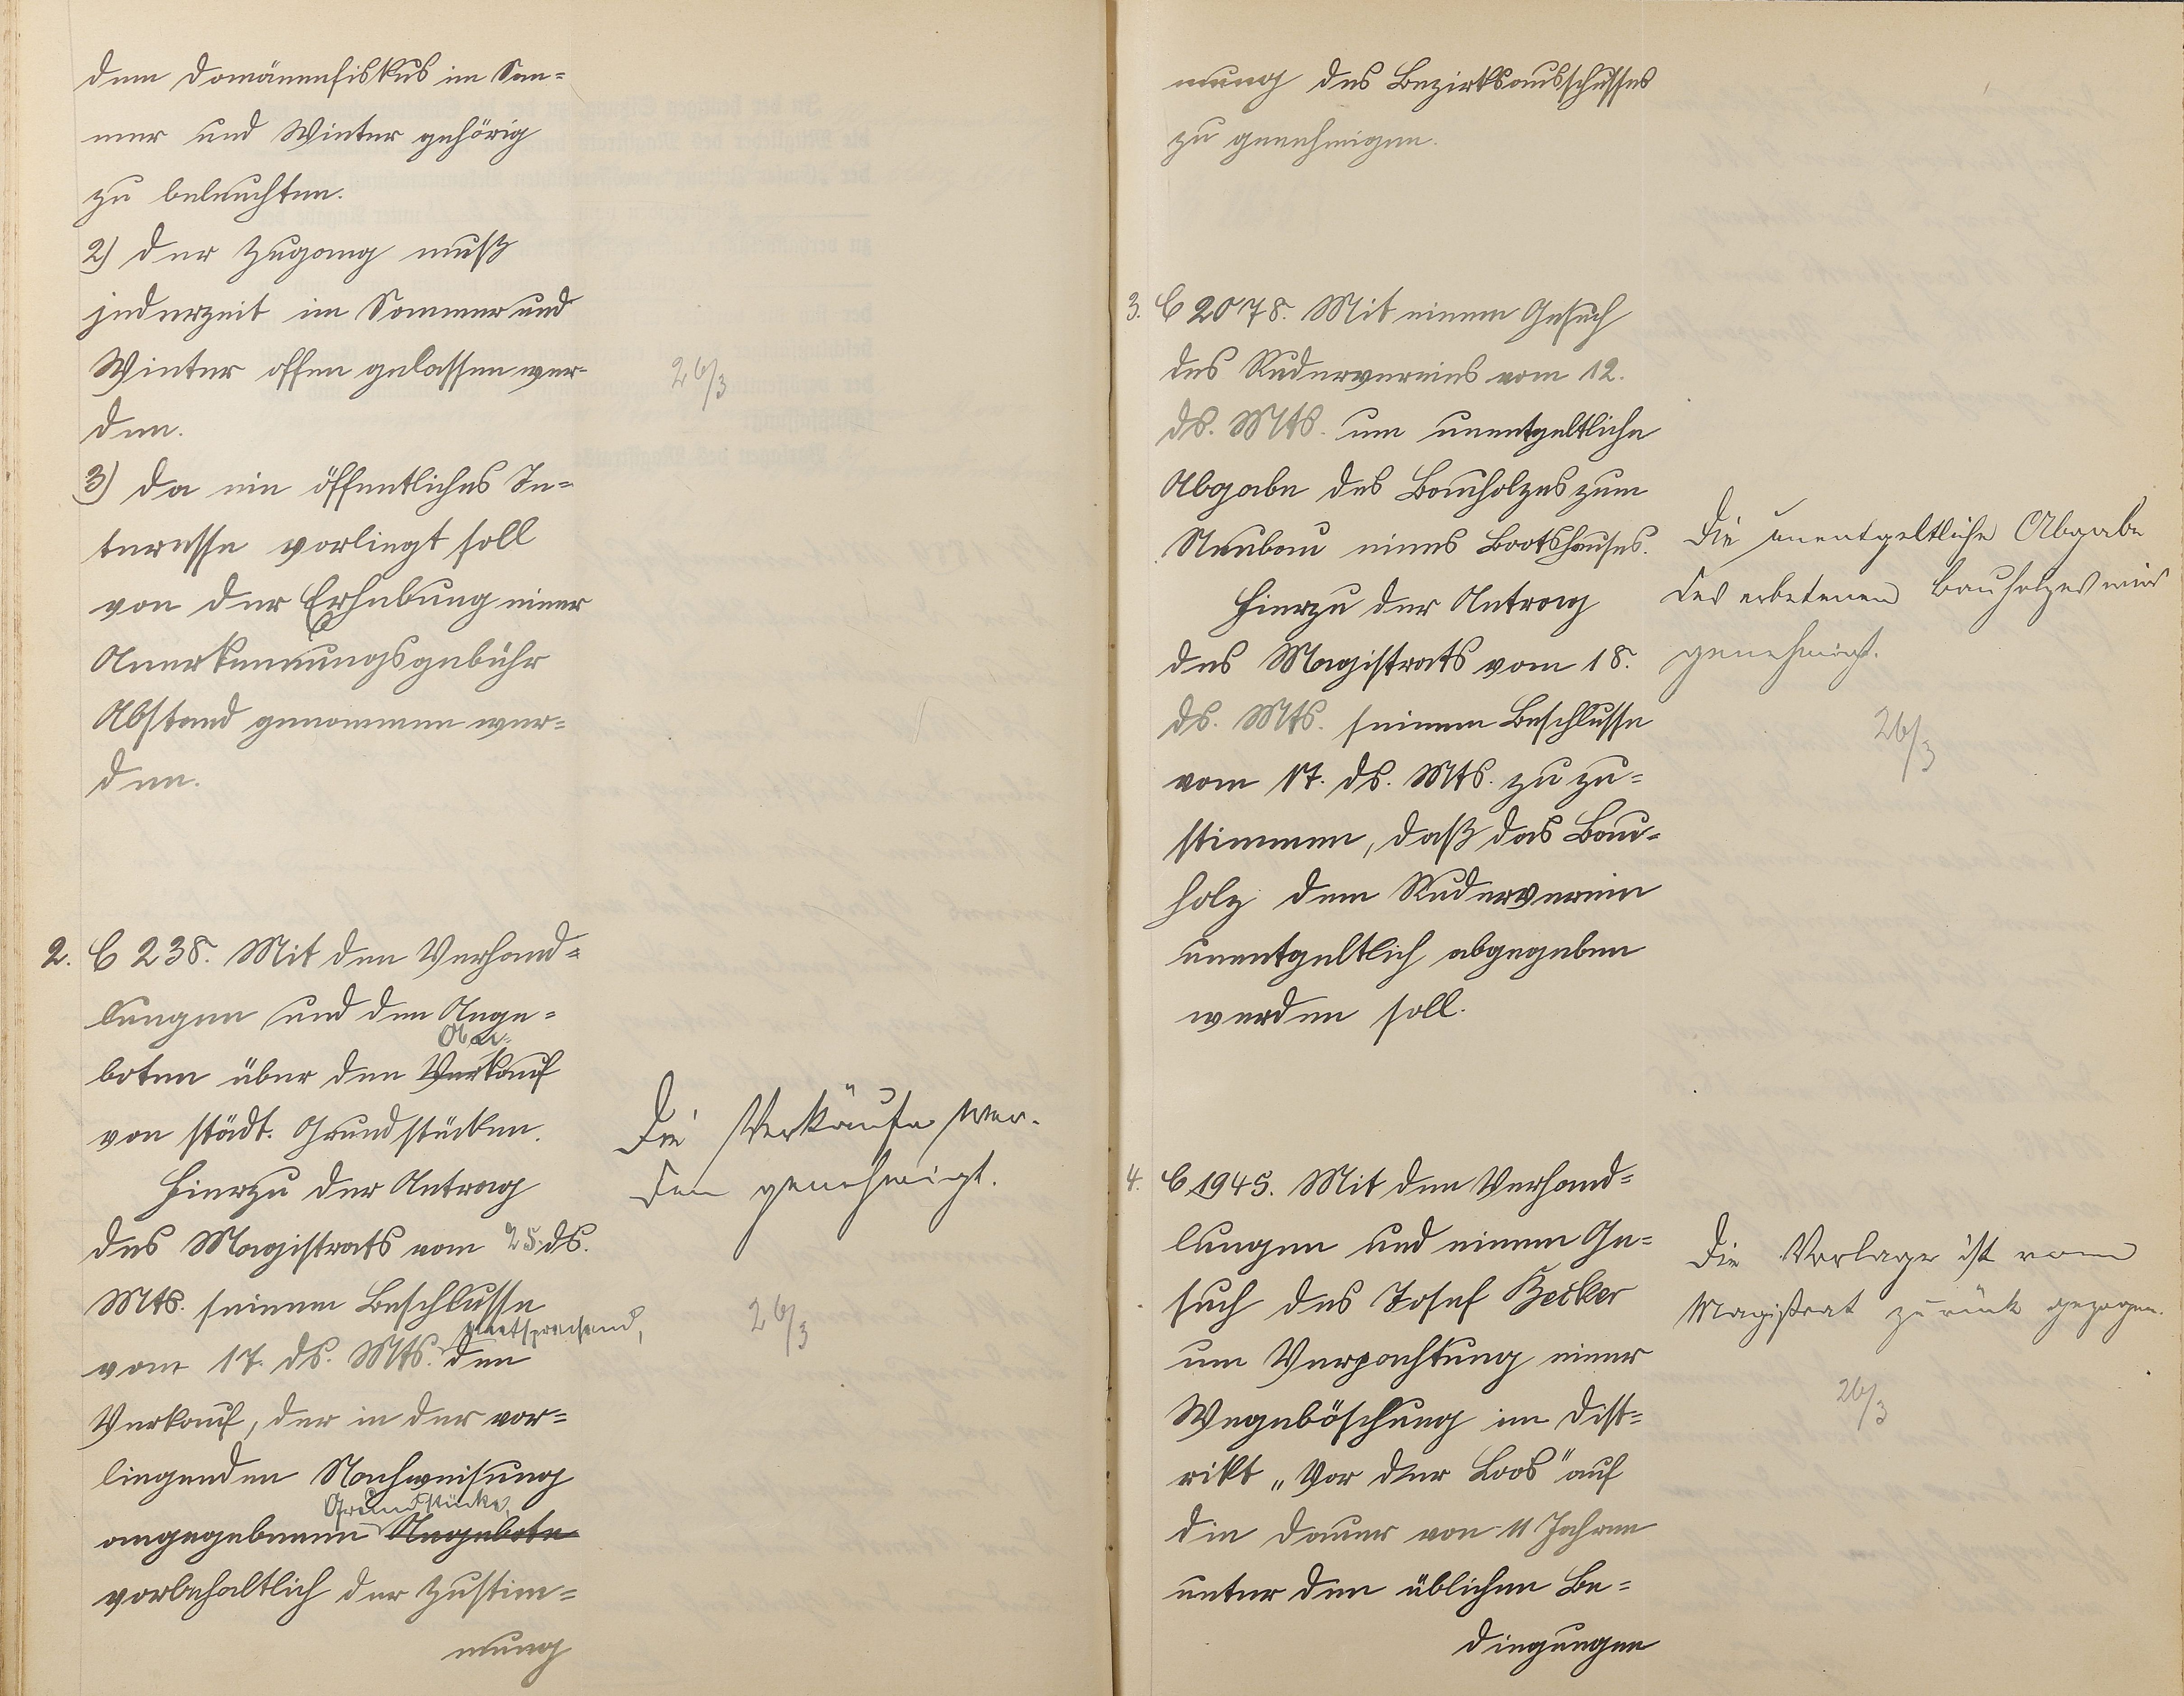 dem Domänenfiskus im Som-
mer und Winter gehörig
zu beleuchten.
2) Der Zugang muß
jederzeit im Sommer und
Winter offen gelassen wer-
den.
26/3
3) Da ein öffentliches In-
teresse vorliegt soll
von der Erhebung einer
Anerkennungsgebühr
Abstand genommen wer-
den.
2. C 238. Mit den Verhand-
lungen und den Ange-
boten über den Verkauf
von städt. Grundstücken.
Hierzu der Antrag
des Magistrats vom 25. ds.
Mts. seinem Beschlusse
entsprechend,
vom 17. ds. Mts. den
Verkauf, der in der vor-
liegenden Nachweisung
Grundstücke
angegebenen Angebote
vorbehaltlich der Zustim-
mung
Die Verkäufe wer-
den genehmigt.
26/3
mung des Bezirksausschusses
zu genehmigen.
3. C 2078. Mit einem Gesuch
des Rudervereins vom 12.
ds. Mts. um unentgeltliche
Abgabe des Bauholzes zum
Neubau eines Bootshauses.
Hierzu der Antrag
des Magistrats vom 18.
ds. Mts. seinem Beschlusse
vom 17. ds. Mts. zu zu-
stimmen, daß das Bau-
holz dem Ruderverein
unentgeltlich abgegeben
werden soll.
Die unentgeltliche Abgabe
des erbetenen Bauholzes wird
genehmigt.
26/3
4. C 1945. Mit den Verhand-
lungen und einem Ge-
such des Josef Becker
um Verpachtung einer
Wegeböschung im Dist-
rikt „Vor der Loos" auf
die Dauer von 11 Jahren
unter den üblichen Be-
dingungen
Die Vorlage ist vom
Magistrat zurück gezogen.
26/3